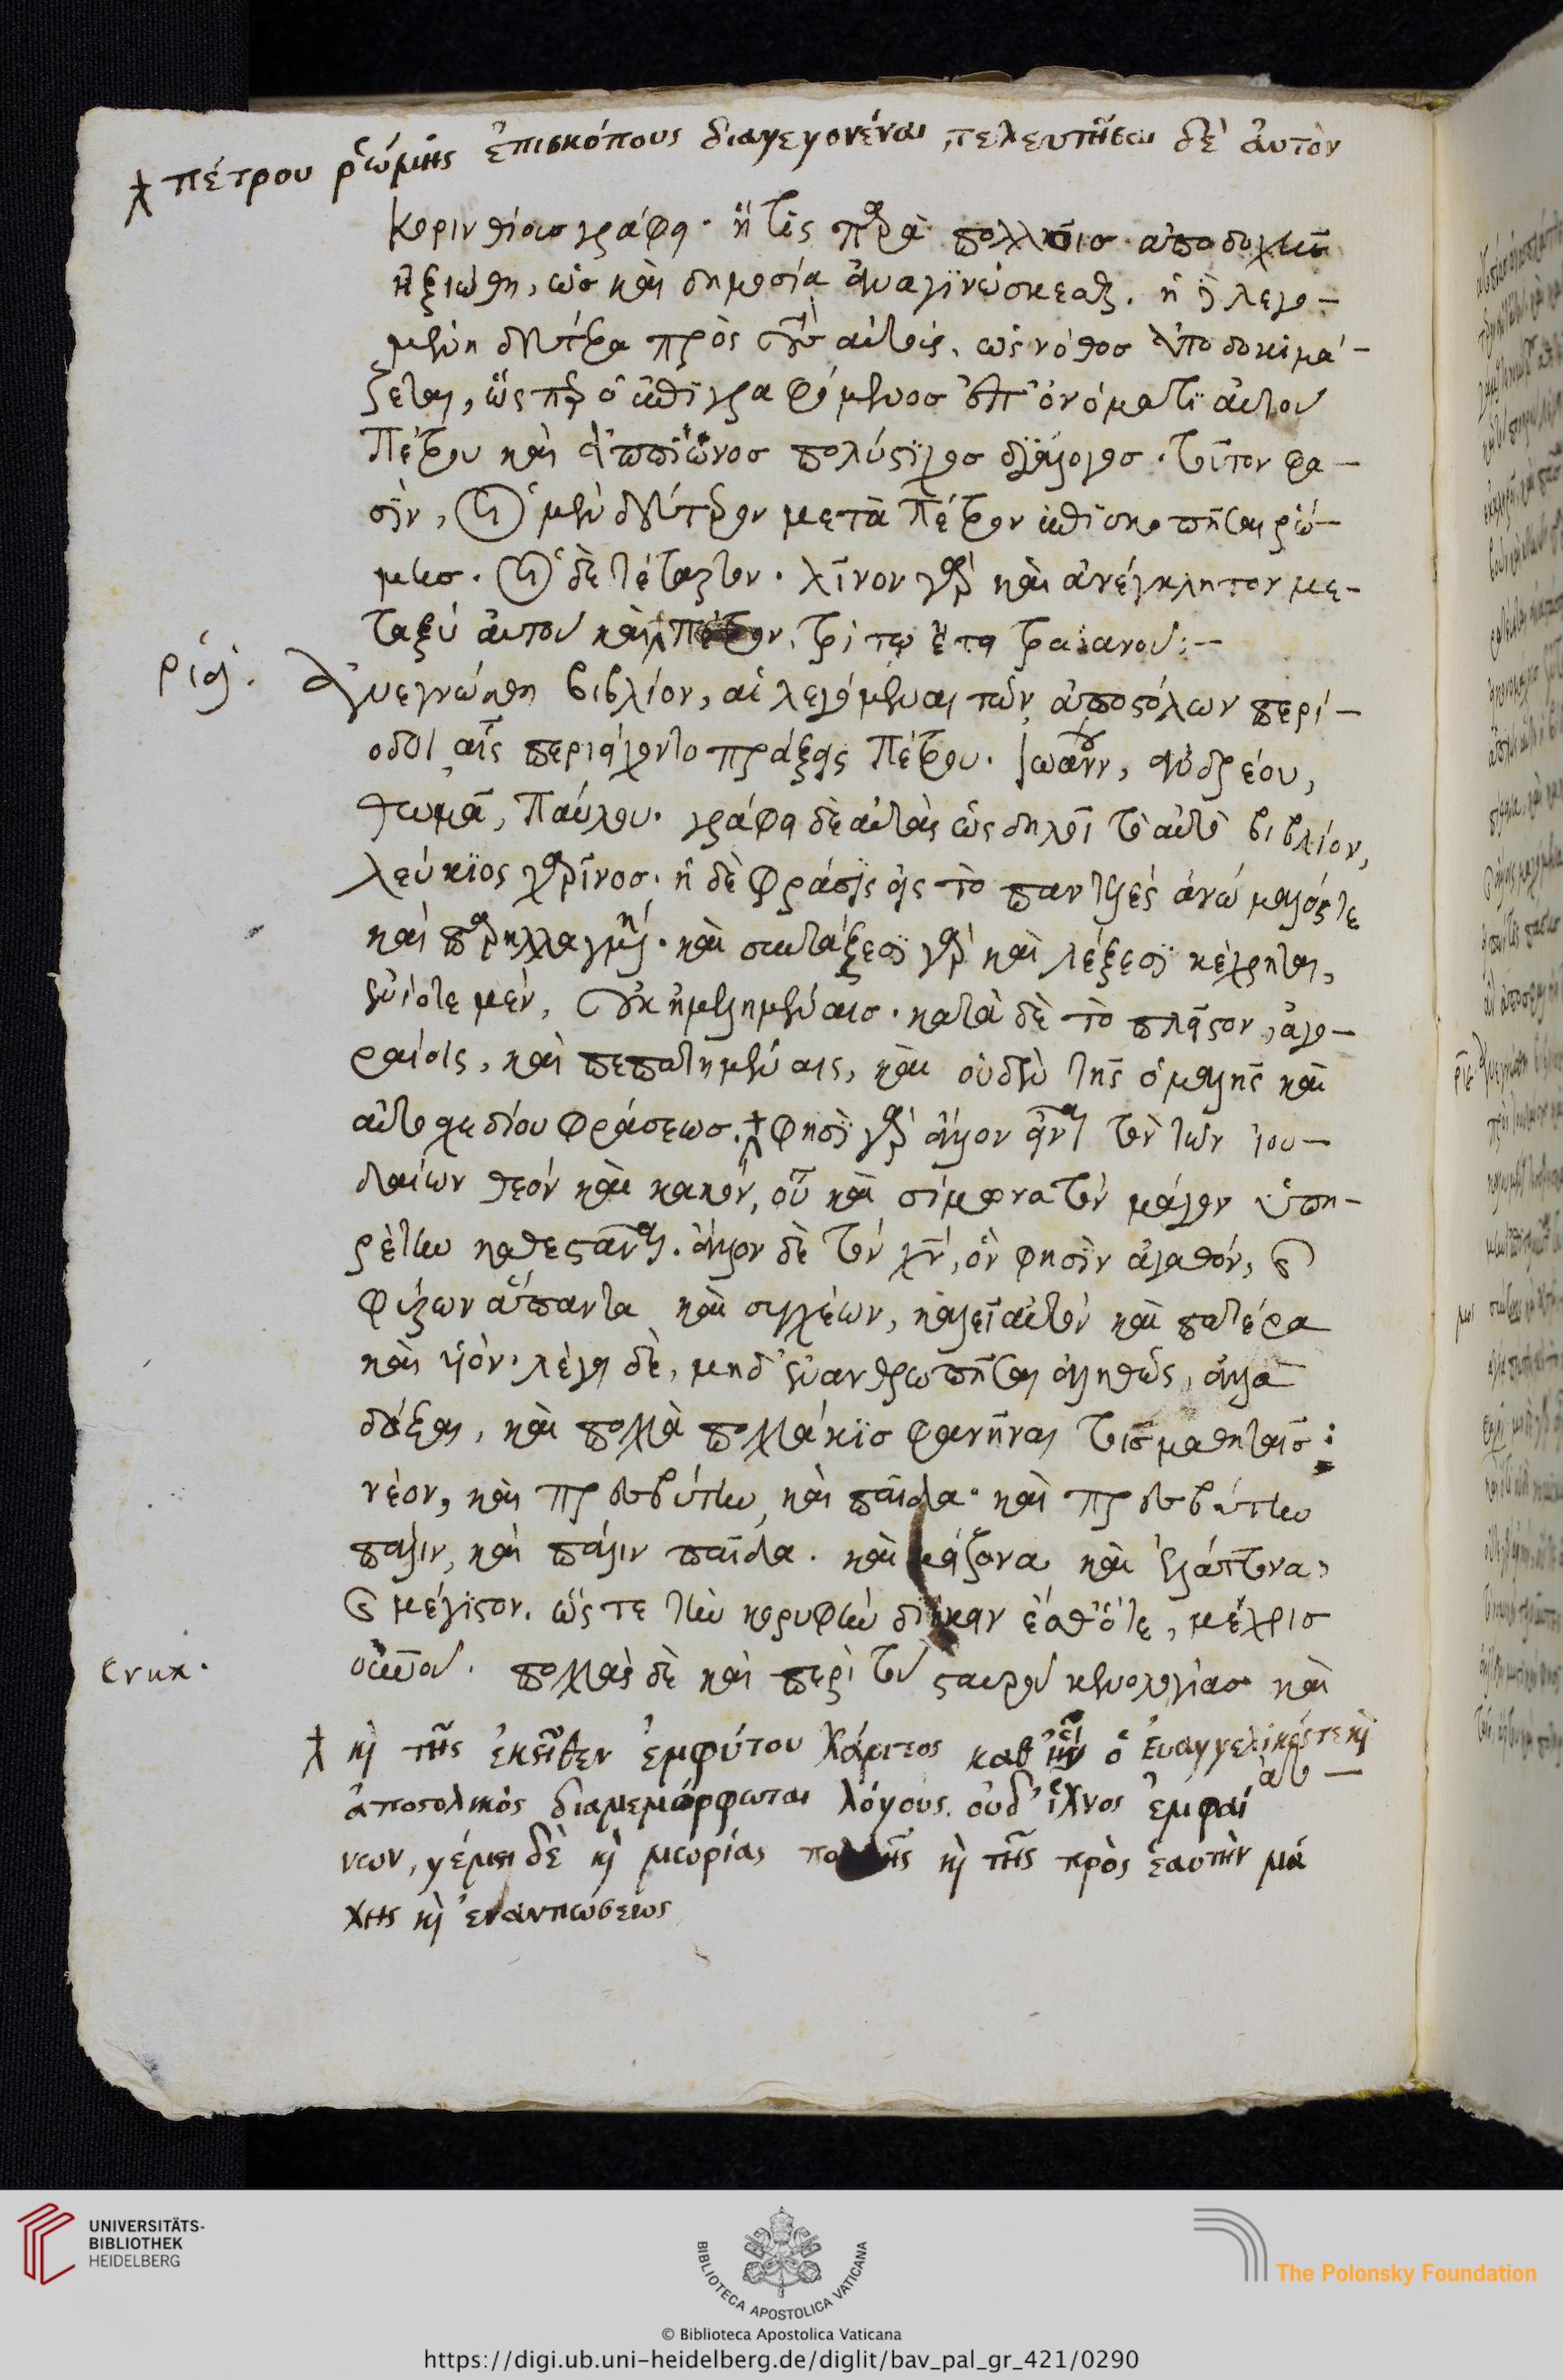 ⳩ πέτρου ῥώμης ἐπισκόπους διαγεγονέναι, τελευτῆσαι δὲ ἀυτὸν
κορινθίοισ γράφει· ἥ τις παρὰ πολλοῖσ ἀποδοχῆσ
ἠξιώθη, ὡσ καὶ δημοσία ἀναγϊνώσκεσθαι. ἡ δὲ λεγο-
μένη δευτέρα πρὸς τοὺς αὐτοὺς, ὡς νόθοσ ἀποδοκιμά-
ζεται, ὥς περ ὁ ἐπϊγραφόμενοσ ἐπ' ὀνόματϊ αὐτοῦ
Πέτρου καὶ ἀππϊωνοσ πολύστϊχοσ διάλογοσ. τοῦτον φα-
σϊν, οἱ μὲν δεύτερον μετὰ Πέτρον ἐπϊσκοπῆσαι ῥώ-
μησ. οἱ δὲ τέταρτον. λῖνον γὰρ καὶ ἀνέγκλητον με-
ταξὺ αὐτοῦ καὶ ⳩ Πέτρου, τρίτω ἔτει τραϊανοῦ:-
ριδ. Ἀνεγνώσθη βιβλίον, αἱ λεγόμεναι τῶν ἀποστόλων περί-
οδοι, αἷς περιείχοντο πράξεις Πέτρου. Ἰωάνν, ἀνδρέου,
θωμᾶ, Παύλου. γράφει δὲ αὐτὰς ὡς δηλοῖ τὸ αὐτὸ βιβλίον,
λεύκϊος χαρῖνοσ. ἡ δὲ φράσϊς εἰς τὸ παντελὲς ἀνώμαλός τε
καὶ παρηλλαγμένη. καὶ συντάξεσϊ γὰρ καὶ λέξεσϊ κέχρηται,
ἐνίοτε μὲν, οὐκ ἠμελημέναισ. κατὰ δὲ τὸ πλεῖστον, ἀγο-
ραίοις, καὶ πεπατημέναις, καὶ οὐδὲν τῆς ὁμαλῆς καὶ
αὐτοσχεδίου φράσεωσ. ⳩ φησϊ γὰρ ἄλλον εἶναι τὸν τῶν ἰου-
δαίων θεὸν καὶ κακόν, οὗ καὶ σίμωνα τὸν μάγον ὑπη-
ρέτην καθεστάναι. ἄλλον δὲ τὸν χν, ὅν φησϊν ἀγαθόν, καὶ
φύρων ἅπαντα καὶ συγχέων, καλεῖ αὐτὸν καὶ πατέρα
καὶ υἱὸν. λέγει δὲ, μηδ' ἐνανθρωπῆσαι ἀληθῶς, ἀλλὰ
δόξαι, καὶ πολλὰ πολλάκϊσ φανῆναι τοῖσ μαθηταῖσ:
νέον, καὶ πρεσβύτην, καὶ παῖδα. καὶ πρεσβύτην
πάλιν, καὶ πάλιν παῖδα. καὶ μείζονα καὶ ἐλάττονα,
καὶ μέγιστον. ὥς τε τὴν κορυφὴν διήκειν ἔσθ' ὅτε, μέχρισ
οὐνοῦ. πολλὰς δὲ καὶ περὶ τοῦ σταυροῦ κενολογίασ καὶ
crux.
⳩ κὶ τῆς ἐκεῖθεν ἐμφύτου χάριτος καθ' ἣν ὁ ἐυαγγελικός τε κὶ
ἀποστολικὸς διαμεμόρφωται λόγους. οὐδ' ἴχνος ἐμφαί
νων, γέμει δὲ κὶ μωρίας πολλῆς κὶ τῆς πρὸς ἑαυτὴν μά
χης κὶ ἐναντιώσεως
UNIVERSITÄTS-
BIBLIOTHEK
HEIDELBERG
BIBLIOTECA APOSTOLICA VATICANA
The Polonsky Foundation
© Biblioteca Apostolica Vaticana
https://digi.ub.uni-heidelberg.de/diglit/bav_pal_gr_421/0290